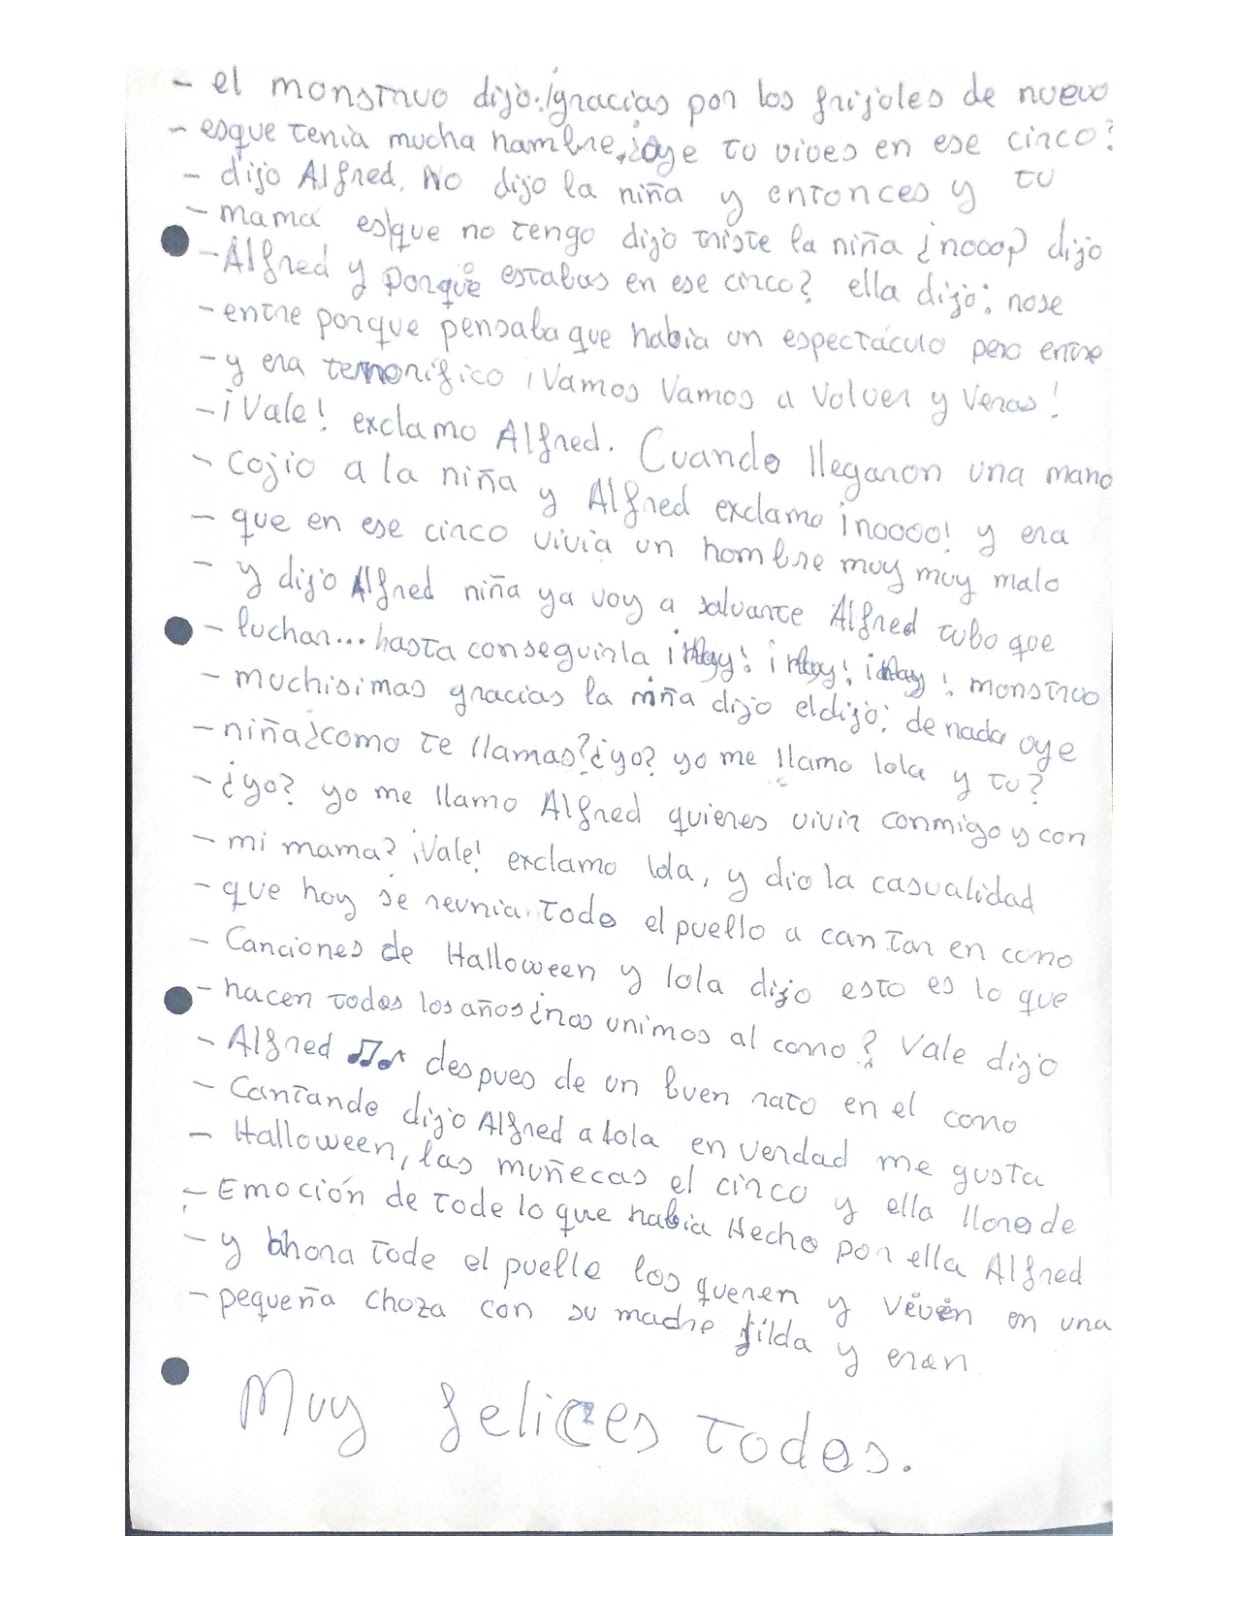 - el monstruo dijo:¡gracias por los frijoles de nuevo
- esque tenia mucha hambre,¿oye tu vives en ese circo?
- dijo Alfred. No dijo la niña y entonces y tu
- mamá esque no tengo dijo triste la niña ¿nooo? dijo
- Alfred y porqué estabas en ese circo? ella dijo: nose
- entre porque pensaba que habia un espectáculo pero entre
- y era terrorifico ¡Vamos Vamos a Volver y Veras!
- ¡Vale! exclamo Alfred. Cuando llegaron una mano
- cojio a la niña y Alfred exclamo ¡noooo! y era
- que en ese circo vivia un hombre muy muy malo
- y dijo Alfred niña ya voy a salvarte Alfred tubo que
- luchar... hasta conseguirla ¡Hay! ¡Hay! ¡Hay! monstruo
- muchisimas gracias la niña dijo el dijo: de nada oye
- niña ¿como te llamas? ¿yo? yo me llamo lola y tu?
- ¿yo? yo me llamo Alfred quieres vivir conmigo y con
- mi mama? ¡Vale! exclamo lola, y dio la casualidad
- que hoy se reunia todo el pueblo a cantar en corro
- Canciones de Halloween y lola dijo esto es lo que
- hacen todos los años ¿nos unimos al corro? Vale dijo
- Alfred ♫♪ despues de un buen rato en el corro
- Cantando dijo Alfred a lola en verdad me gusta
- Halloween, las muñecas el circo y ella lloro de
- Emoción de todo lo que habia Hecho por ella Alfred
- y ahora todo el pueblo los queren y viven en una
- pequeña choza con su madre filda y eran
Muy felices todos.